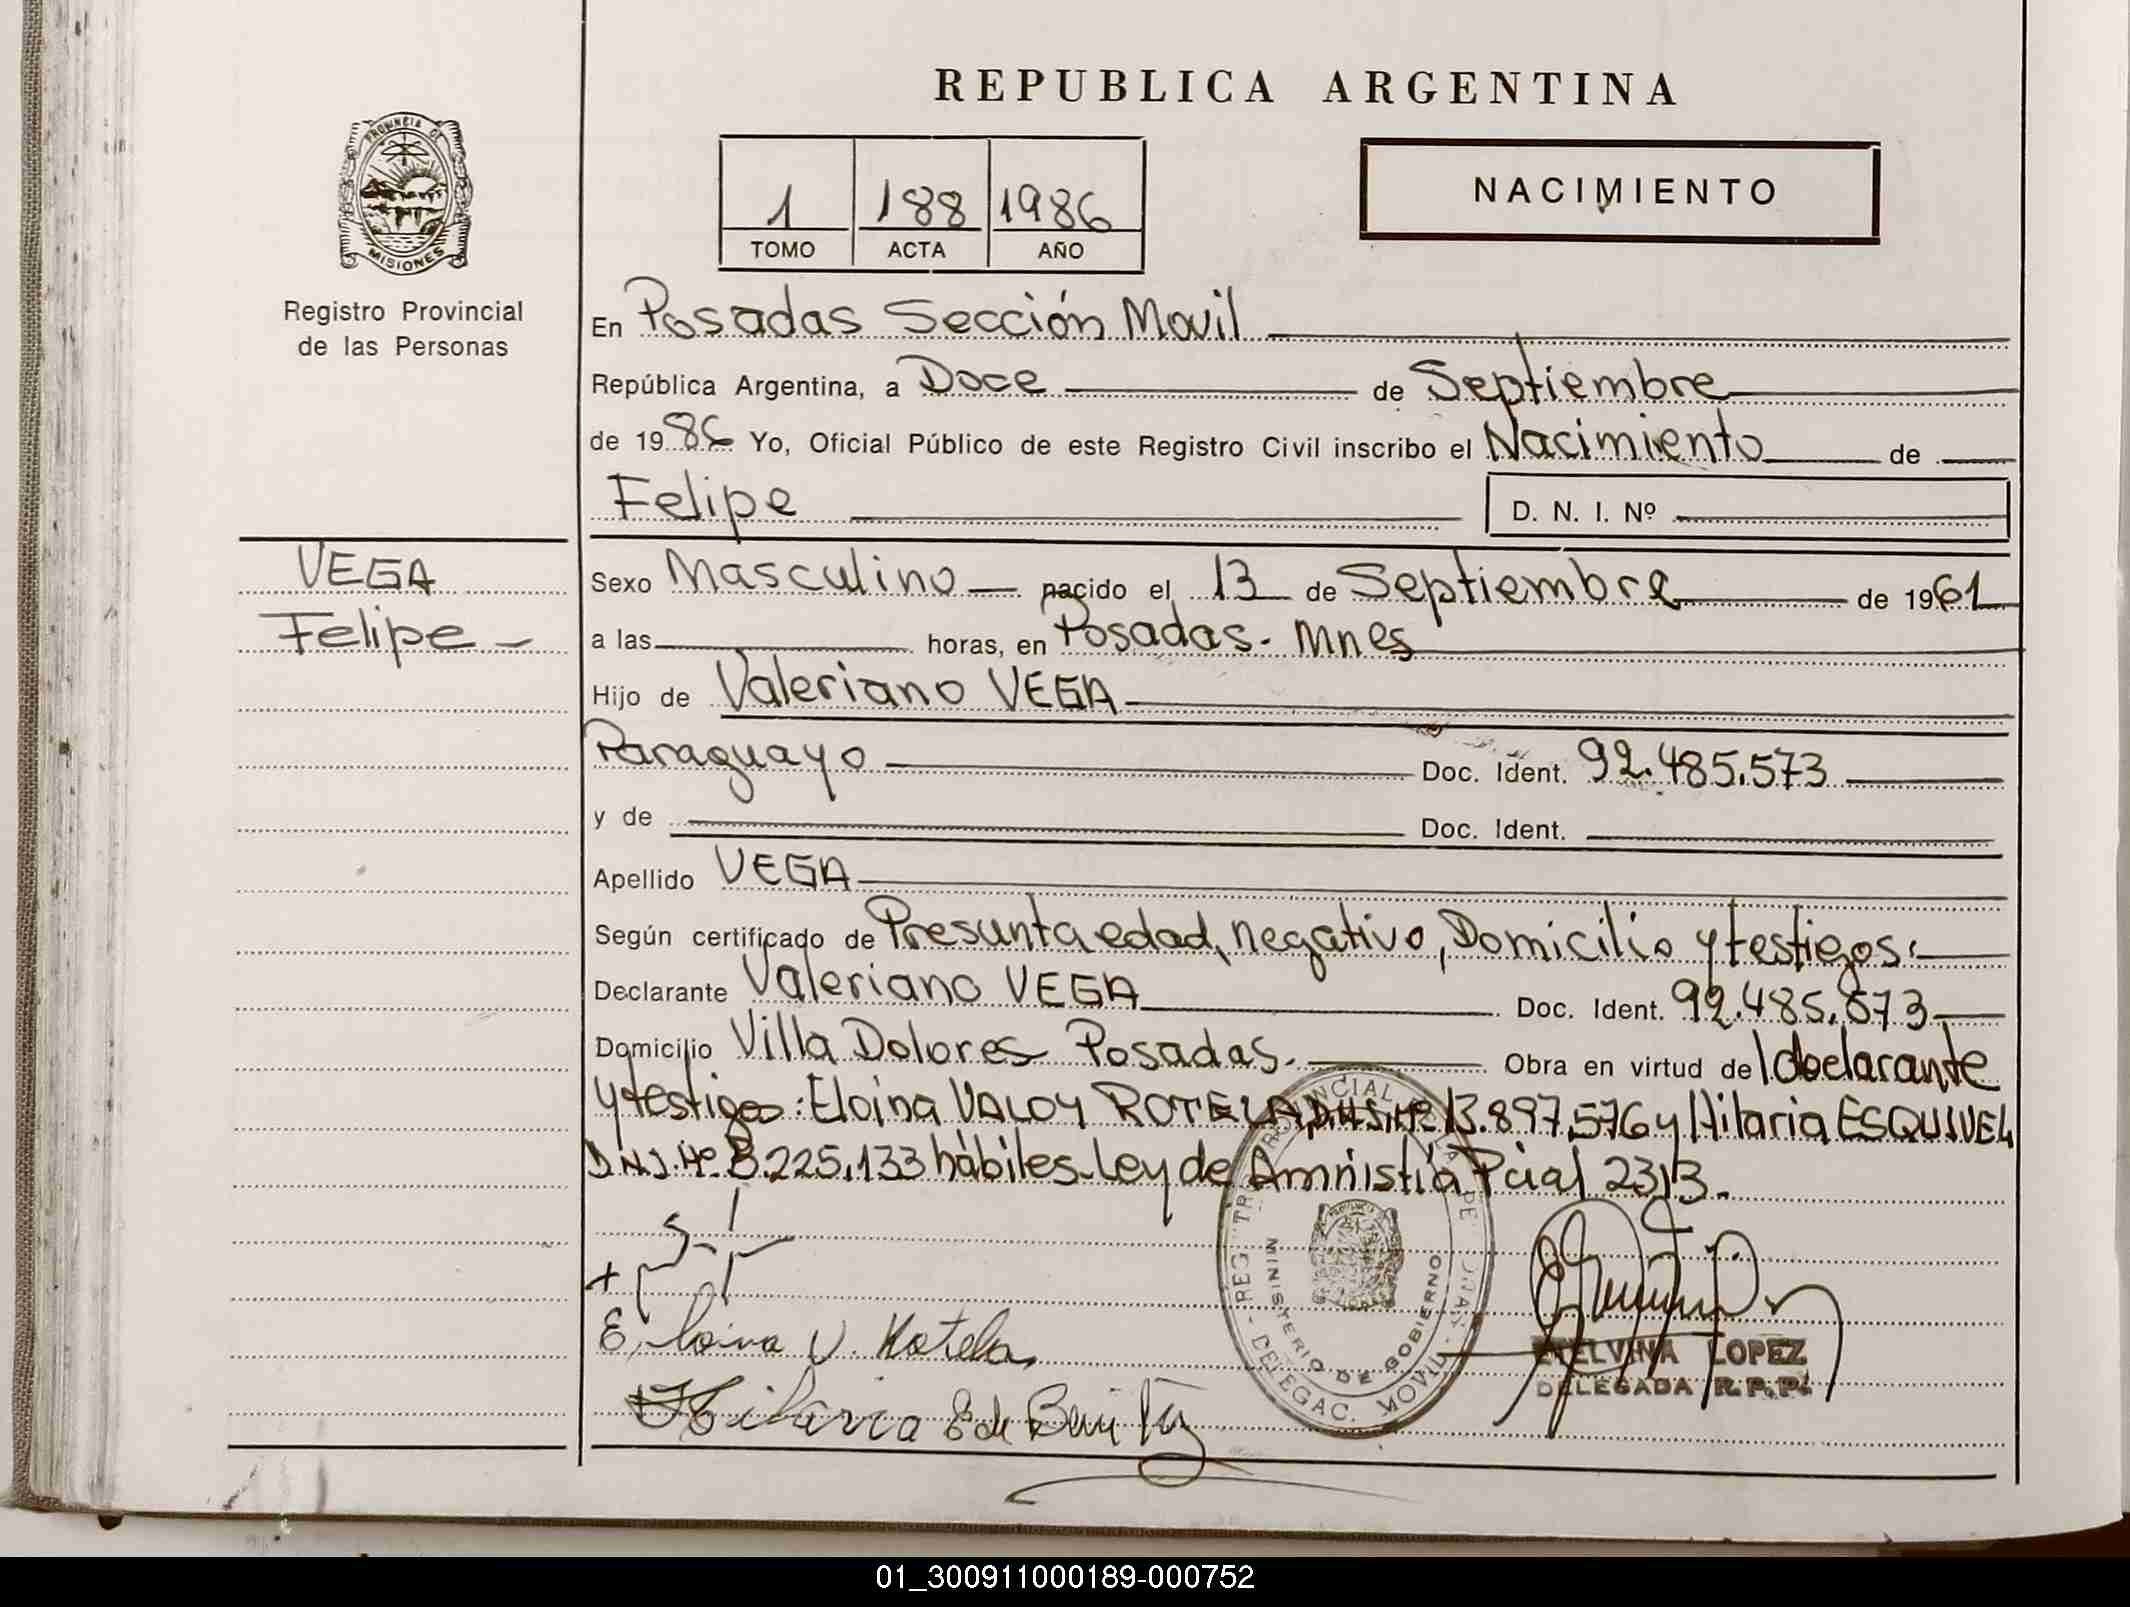 REPUBLICA ARGENTINA
PROVINCIA DE
MISIONES
Registro Provincial
de las Personas
1 188 1986
TOMO ACTA AÑO
NACIMIENTO
En Posadas Sección Movil
República Argentina, a Doce de Septiembre
de 1986 Yo, Oficial Público de este Registro Civil inscribo el Nacimiento de
Felipe D. N. I. Nº
VEGA
Felipe
Sexo Masculino nacido el 13 de Septiembre de 1961
a las horas, en Posadas. Mnes
Hijo de Valeriano VEGA
Paraguayo Doc. Ident. 92.485.573
y de Doc. Ident.
Apellido VEGA
Según certificado de Presunta edad, negativo, Domicilio y testigos.
Declarante Valeriano VEGA Doc. Ident. 92.485.573
Domicilio Villa Dolores Posadas. Obra en virtud de l declarante
y testigos: Eloina VALOY ROTELA, 13.897.576 y Hilaria ESQUIVEL
225.133 hábiles. Ley de Amnistia Pcial 2313.
E. loina V. Rotela
Hilaria E de Benitez
MINISTERIO DE GOBIERNO
DELEGAC. MOVIL
ETELVINA LOPEZ
DELEGADA R.P.P.
01_300911000189-000752